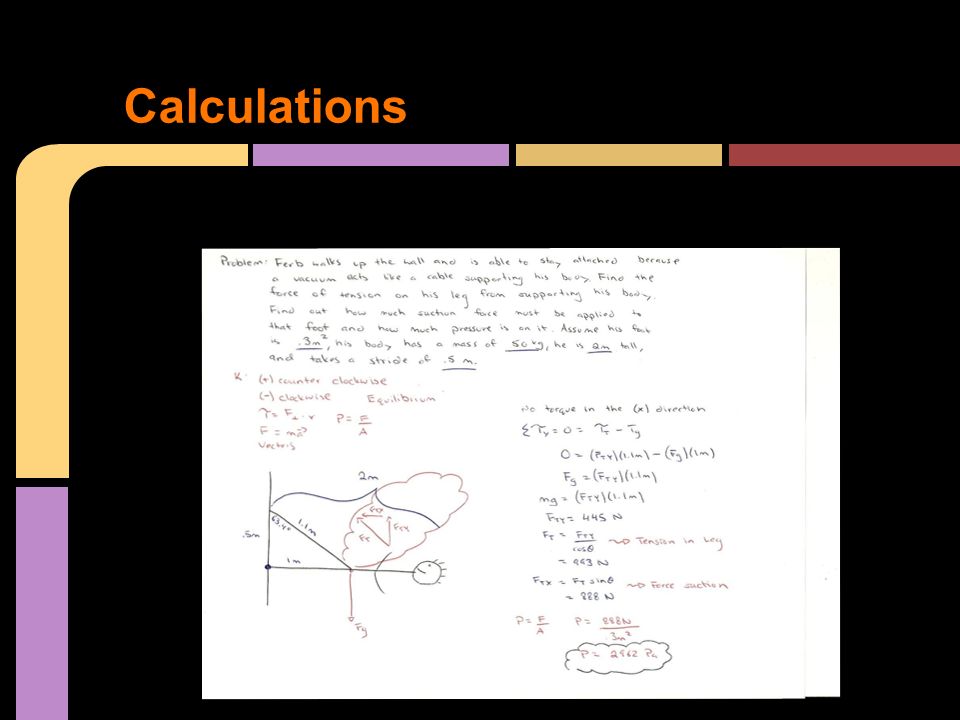 Calculations
Problem: Ferb walks up the wall and is able to stay attached because
a vacuum acts like a cable supporting his body. Find the
force of tension on his leg from supporting his body.
Find out how much suction force must be applied to
that foot and how much pressure is on it. Assume his foot
is .3m², his body has a mass of 50 kg, he is 2m tall,
and takes a stride of .5 m.
K: (+) counter clockwise
(-) clockwise Equilibrium
τ = F⊥ · r P = F/A
F = ma
Vectors
2m
.5m
63.4°
1.1m
1m
FTX
FT
FTY
Fg
No torque in the (x) direction
Στy = 0 = τT - τg
0 = (FTY)(1.1m) - (Fg)(1m)
Fg = (FTY)(1.1m)
mg = (FTY)(1.1m)
FTY = 445 N
FT = FTY/cosθ → Tension in Leg
= 993 N
FTX = FT sinθ → Force suction
= 888 N
P = F/A P = 888N/.3m²
P = 2962 Pa